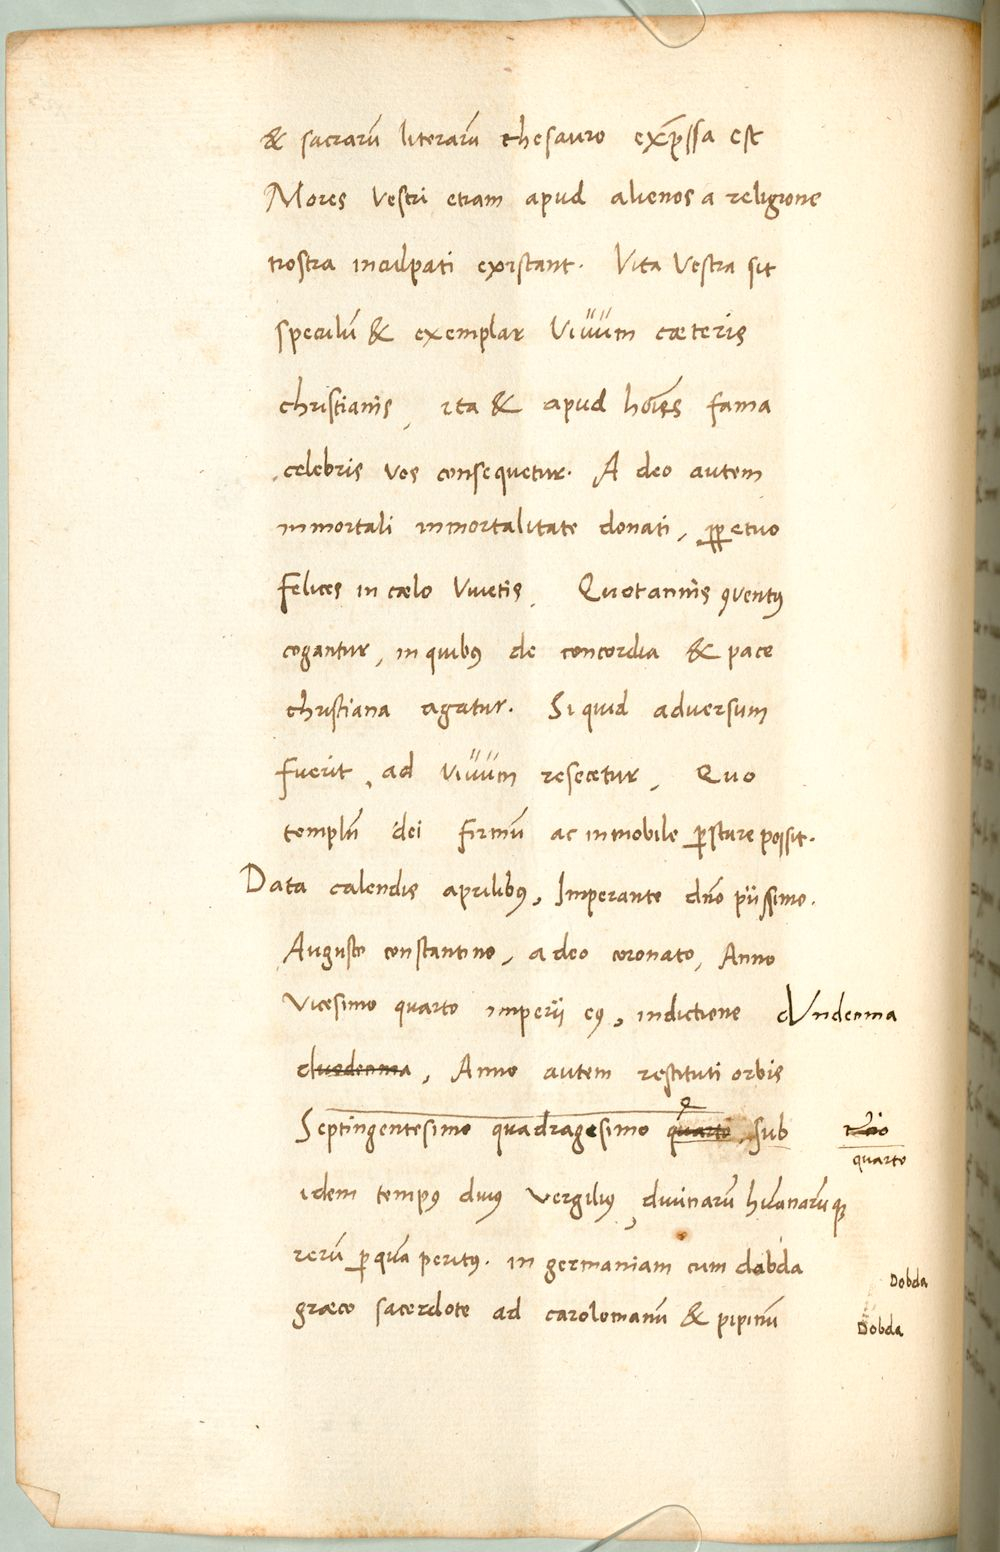 & sacrarū literarū thesauro exp̄ssa est
Mores vestri etiam apud alienos a religione
nostra inculpati existant. Vita vestra sit
speculū & exemplar vivum cæteris
christianis, ita & apud hoīes fama
celebris vos consequetur. A deo autem
inmortali inmortalitate donati, ꝑpetuo
felices in cælo vivetis. Quotannis ꝯventꝰ
cogantur, in quibꝰ de concordia & pace
christiana agatur. Si quid adversum
fuerit, ad vivum resecetur, Quo
templū dei firmū ac inmobile ꝑstare possit.
Data calendis aprilibꝰ, Imperante dño piissimo.
Augusto constantino, a deo coronato, Anno
vicesimo quarto imperii eꝰ, indictione Undecima
duodecima, Anno autem restituti orbis
Septingentesimo quadragesimo quarto, sub
quarto
idem tempꝰ divus vergiliꝰ, divinarū humanarūqꝫ
rerū ꝑquā peritꝰ. in germaniam cum dobda
Dobda
græco sacerdote ad carolomanū & pipinū
Dobda